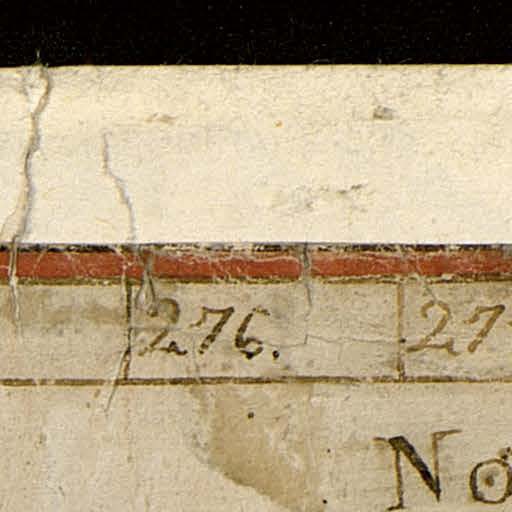 276. 27
No